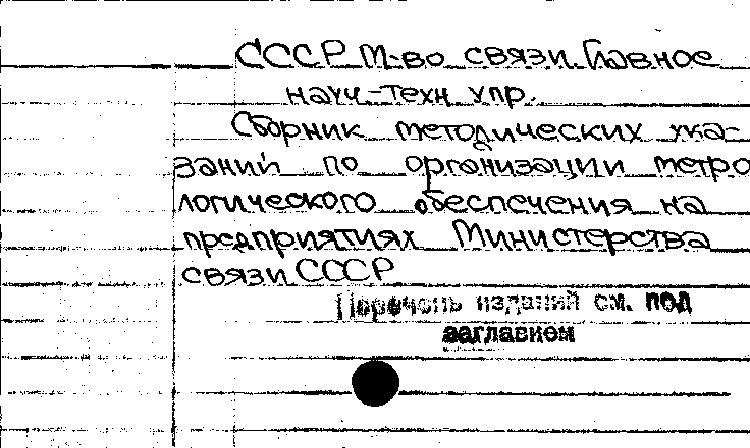 СССР М-во связи. Главное
науч.-техн. упр.
Сборник методических ука-
заний по организации метро
логического обеспечения на
предприятиях Министерства
связи СССР
Перечень изданий см. под
заглавием